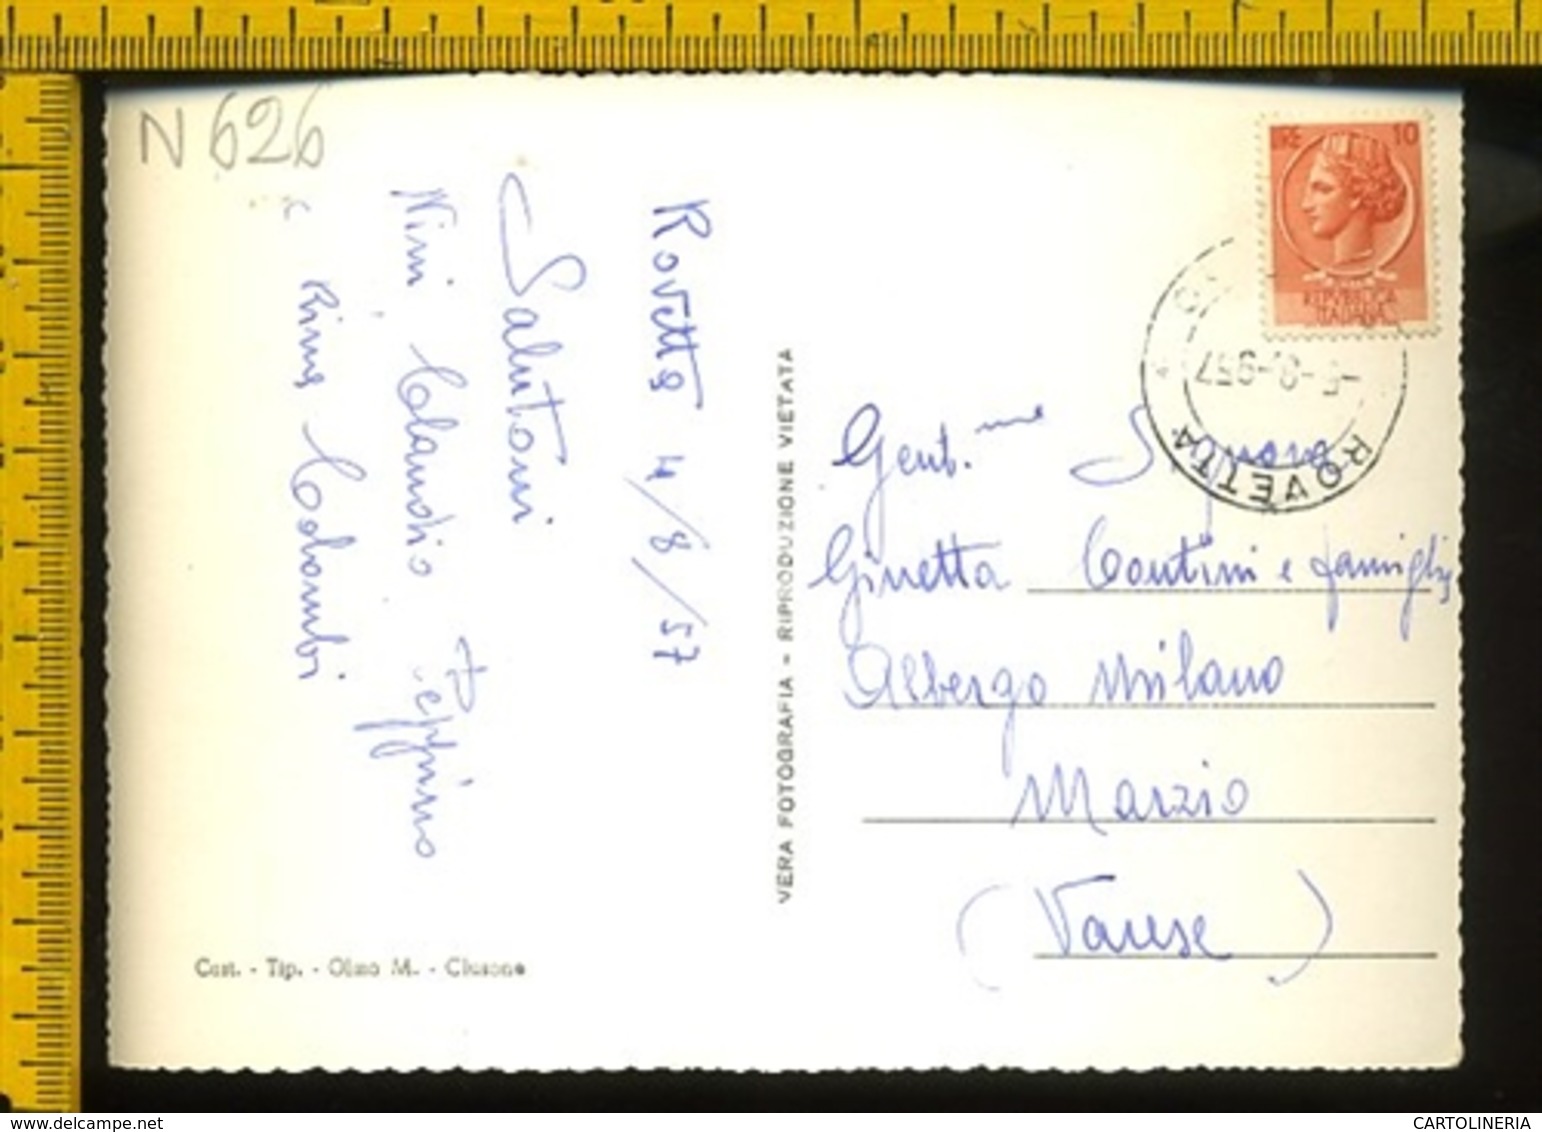 N 626
Rovetta 4/8/57
Salutoni
Nini, Claudio Peppino
e Rina Colombi
VERA FOTOGRAFIA - RIPRODUZIONE VIETATA
Cart. - Tip. - Olmo M. - Clusone
LIRE 10
REPVBBLICA
ITALIANA
-5-8-957
ROVETTA
Gent.me Signora
Ginetta Contini e famiglia
Albergo Milano
Marzio
(Varese)
CARTOLINERIA